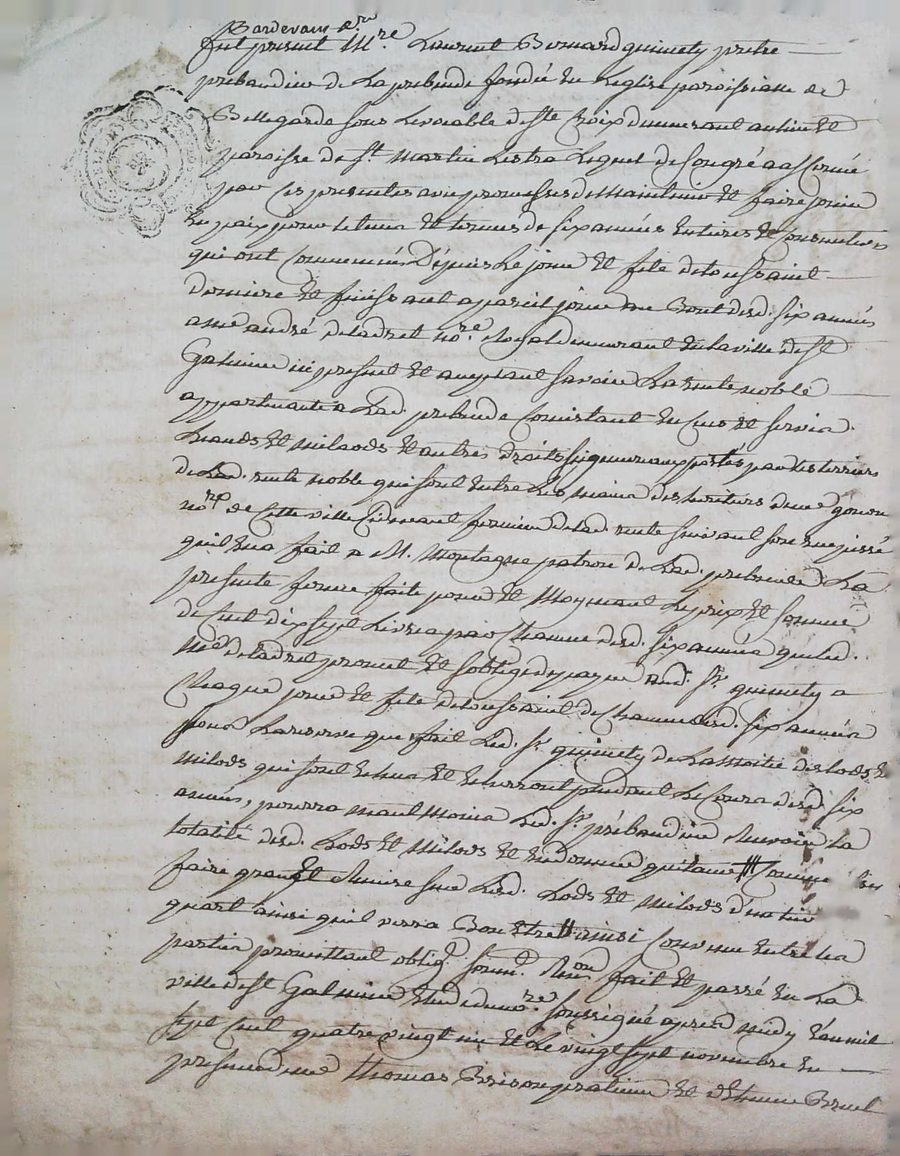 Pardevant
fut present Mre Laurent Bernard quinety pretre
prebandier de La prebende fondée En Leglise paroissiale de
Bellegarde sous Levocable de Ste Croix demeurant au lieu Et
paroisse de St Martin Lestra Lequel de son gré a affermé
par Ces presentes avec promesses de Maintenir Et faire jouir
En paix pour le tems Et termes de six années Entieres Et Consecutives
qui ont Commencées Depuis Le jour Et fete de toussaint
derniere Et finissant a pareil jour au Bout desd. six années
a me andré deladret nore Royal demeurant En la ville de St
Galmier ici present Et acceptant savoir La rente noble
appartenante a Lad. prebende Consistant En Cens Et servis
Leaods Et milaods Et autres droits seigneuriaux portés par Les terriers
de Lad. rente noble qui sont Entre Les mains des heritiers de me
nore de Cette ville Cidevant fermier de lad. rente suivant son
quil En a fait a M. Montagne patron de Lad. prebende La
presente ferme faite pour Et Moyenant Le prix Et somme
de Cent dix sept Livres par Chacune desd. six années que led.
Me deladret promet Et soblige de payer aud. Sr quinety a
Chaque jour Et fete de toussaint de Chacune desd. six années
sous La reserve que fait Led. Sr quinety de La moitié des Lods Et
milods qui sont Echus Et Echerront pendant Le Cours desd. six
années, pourra neant Moins Led. Sr prébandier La
totalité desd. Lods Et Milods Et En donner quitance Comme En
faire grace Et Remise sur Lesd. Lods Et milods d'un tiers
quart ainsi quil verra Bon Etre ainsi Convenu Entre Les
parties promettant oblig. soum. Ren.on fait Et passé En Lad.
ville de St Galmier Etude du nore soussigné apres midy L'an mil
sept Cent quatre vingt un Et Le vingt sept novembre En
presence de me thomas Brison praticien Et Etienne Bruel